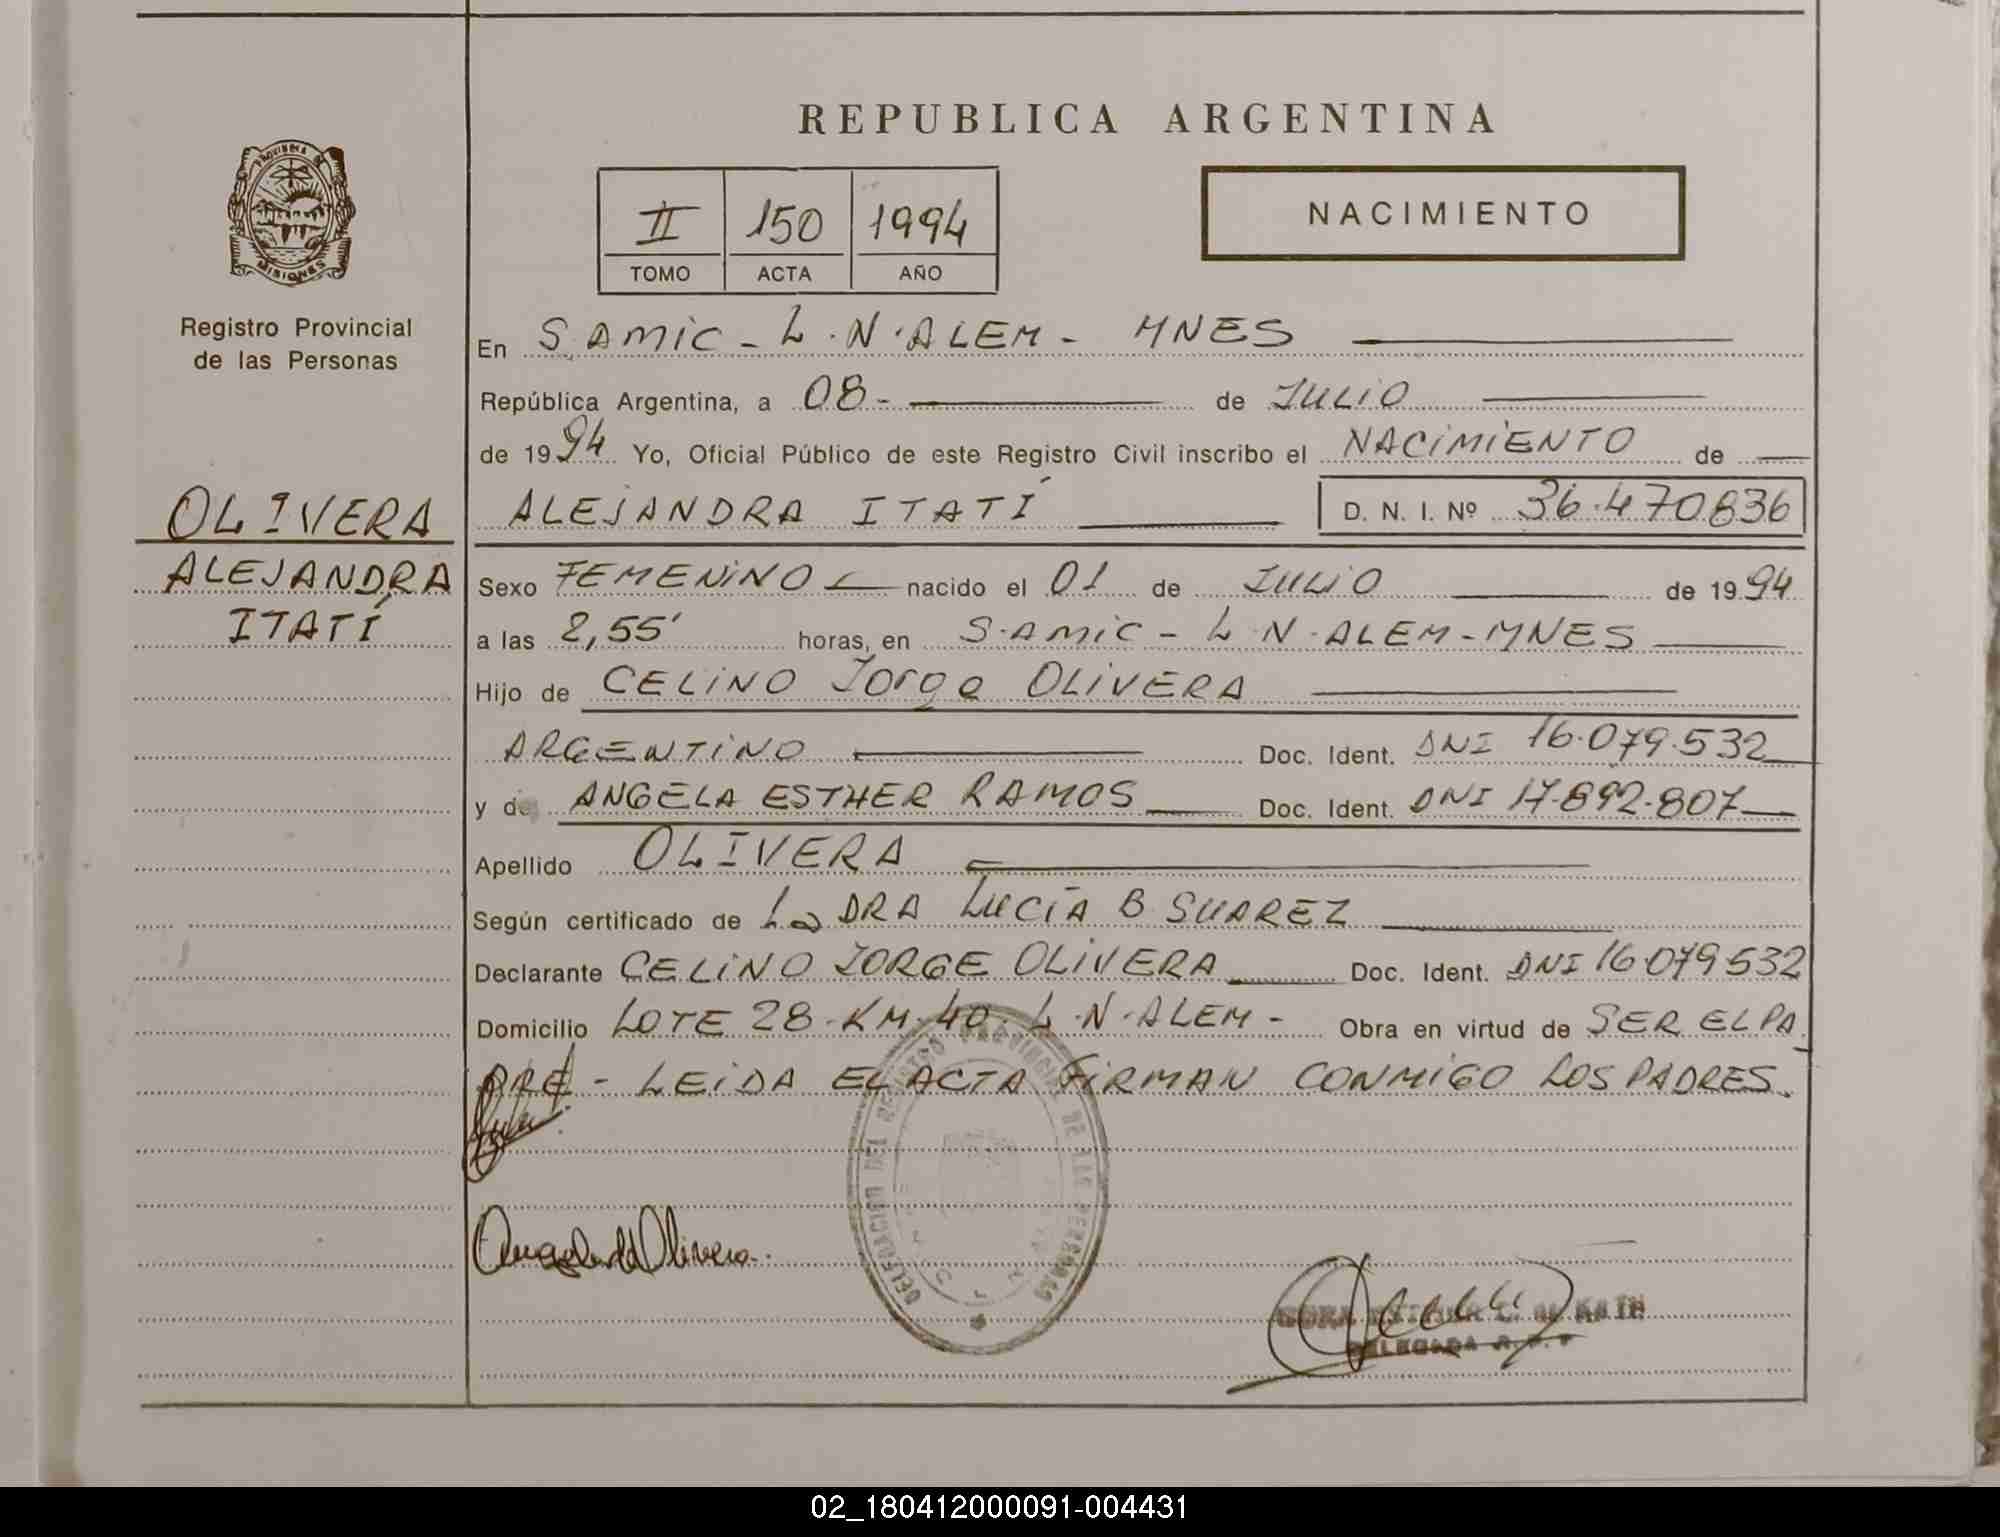 REPUBLICA ARGENTINA
PROVINCIA DE
MISIONES
Registro Provincial
de las Personas
II 150 1994
TOMO ACTA AÑO
NACIMIENTO
En S.AMIC - L.N.ALEM - MNES
República Argentina, a 08- de JULIO
de 1994 Yo, Oficial Público de este Registro Civil inscribo el NACIMIENTO de
OLIVERA
ALEJANDRA ITATÍ D. N. I. Nº 36.470836
ALEJANDRA
ITATÍ
Sexo FEMENINO nacido el 01 de JULIO de 1994
a las 2,55' horas, en S.AMIC - L.N.ALEM-MNES
Hijo de CELINO Jorge OLIVERA
ARGENTINO Doc. Ident. DNI 16.079.532
y de ANGELA ESTHER RAMOS Doc. Ident. DNI 17.892.807
Apellido OLIVERA
Según certificado de La DRA LUCÍA B SUAREZ
Declarante CELINO JORGE OLIVERA Doc. Ident. DNI 16.079532
Domicilio LOTE 28.KM.40. L.N.ALEM - Obra en virtud de SER EL PA
DRE - LEIDA EL ACTA FIRMAN CONMIGO LOS PADRES.
DELEGACION DEL REGISTRO PROVINCIAL DE LAS PERSONAS
Angela de Olivera.
ESTHER
DELEGADA R. P. P
02_180412000091-004431